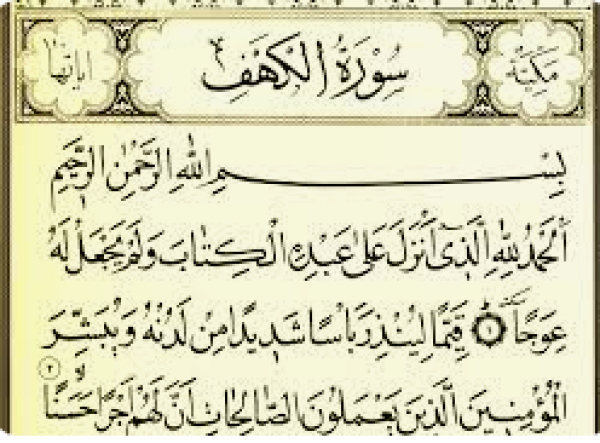 مكية سورة الكهف اياتها
بِسْمِ اللهِ الرَّحْمٰنِ الرَّحِيمِ
اَلْحَمْدُ لِلّٰهِ الَّذِى اَنْزَلَ عَلٰى عَبْدِهِ الْكِتَابَ وَلَمْ يَجْعَلْ لَهُ
عِوَجًا ١ قَيِّمًا لِيُنْذِرَ بَاْسًا شَدِيدًا مِنْ لَدُنْهُ وَيُبَشِّرَ
الْمُؤْمِنِينَ الَّذِينَ يَعْمَلُونَ الصَّالِحَاتِ اَنَّ لَهُمْ اَجْرًا حَسَنًا ٢